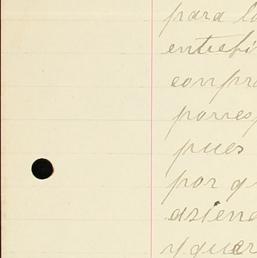 para l
entrefi
compr
porres
pues
por q
asien
y quer